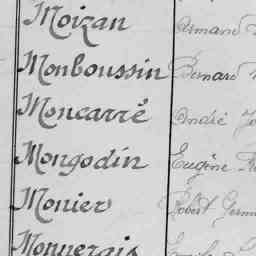 Moizan Armand
Monboussin Bernard
Moncarré André
Mongodin Eugène
Monier Robert Germ
Monnerais